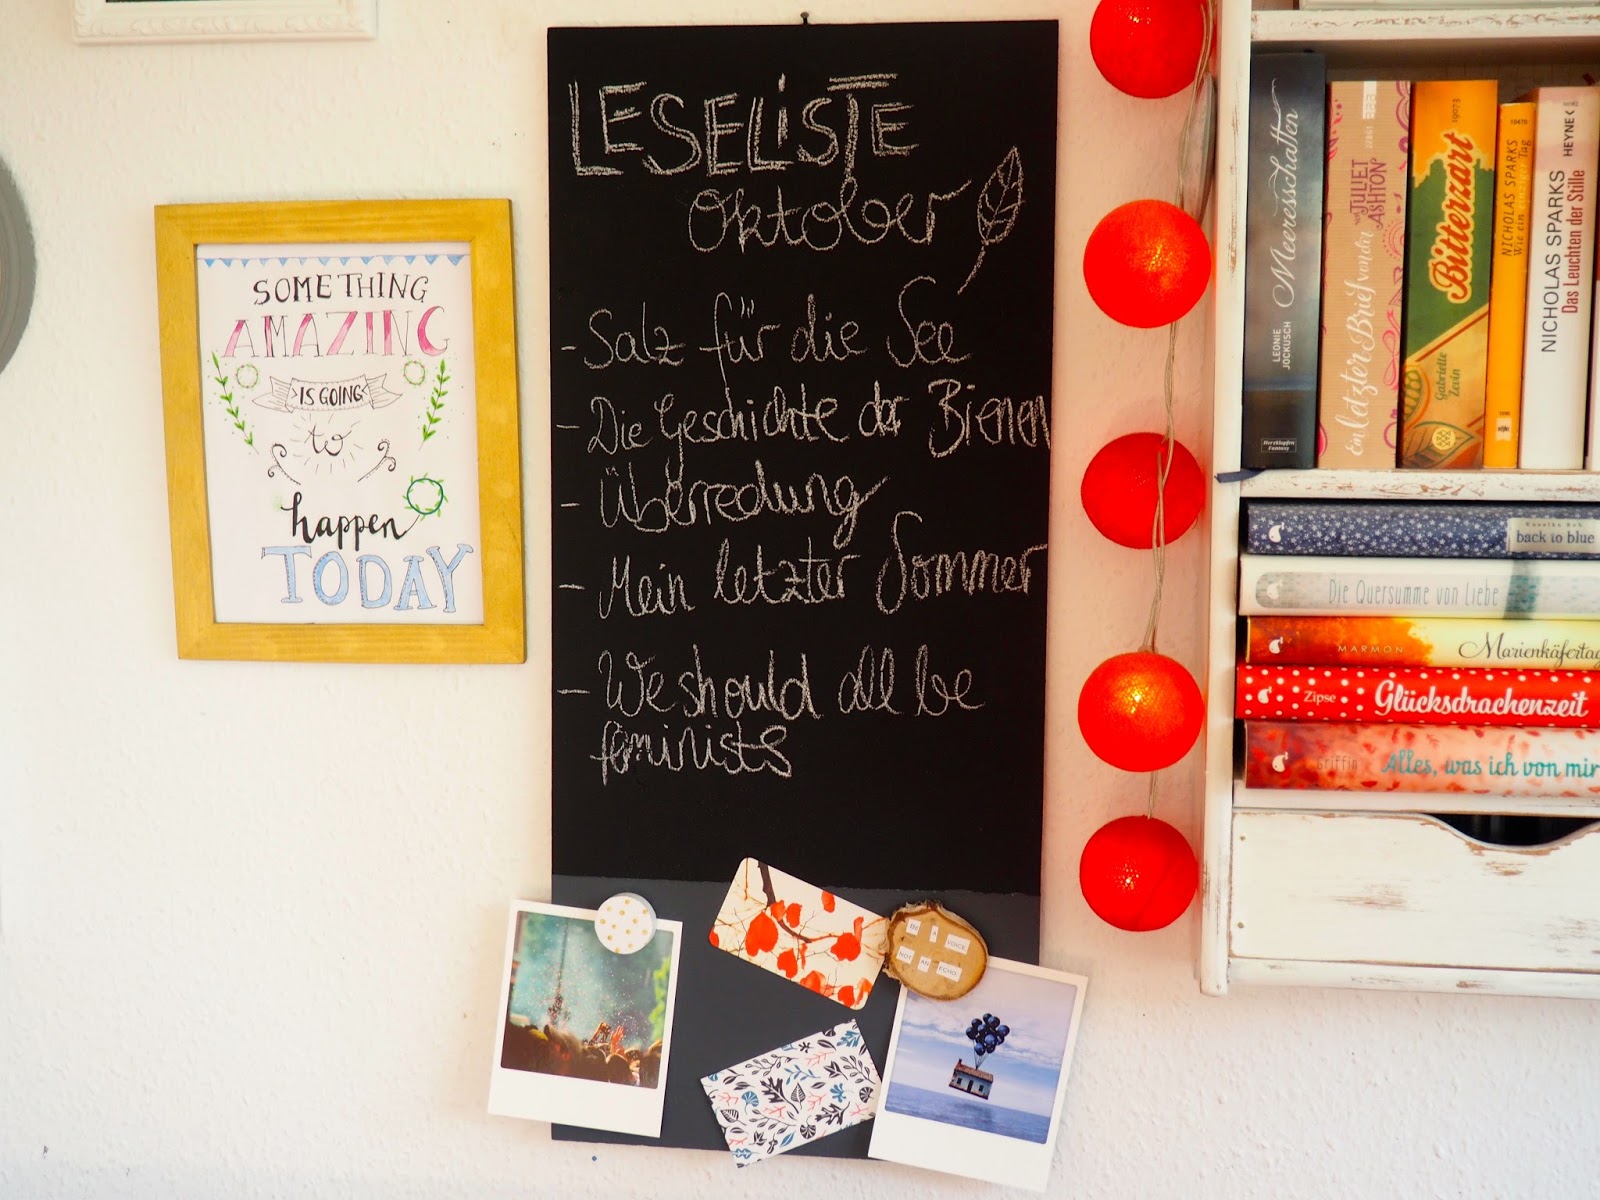 SOMETHING
AMAZING
IS GOING
to
happen
TODAY
LESELISTE
Oktober
- Salz für die See
- Die Geschichte der Bienen
- Überredung
- Mein letzter Sommer
- We should all be
feminists
BE A VOICE,
NOT AN ECHO.
LEONIE JOCKUSCH Meeresschatten
Herzklopfen Fantasy
Ein letzter Brief von dir JULIET ASHTON
Gabrielle Zevin Bitterzart 19073
NICHOLAS SPARKS
Wie ein Tag
NICHOLAS SPARKS HEYNE
Das Leuchten der Stille
back to blue
Die Quersumme von Liebe
MARMON Marienkäfertag
Zipse Glücksdrachenzeit
GRIFFIN Alles, was ich von mir